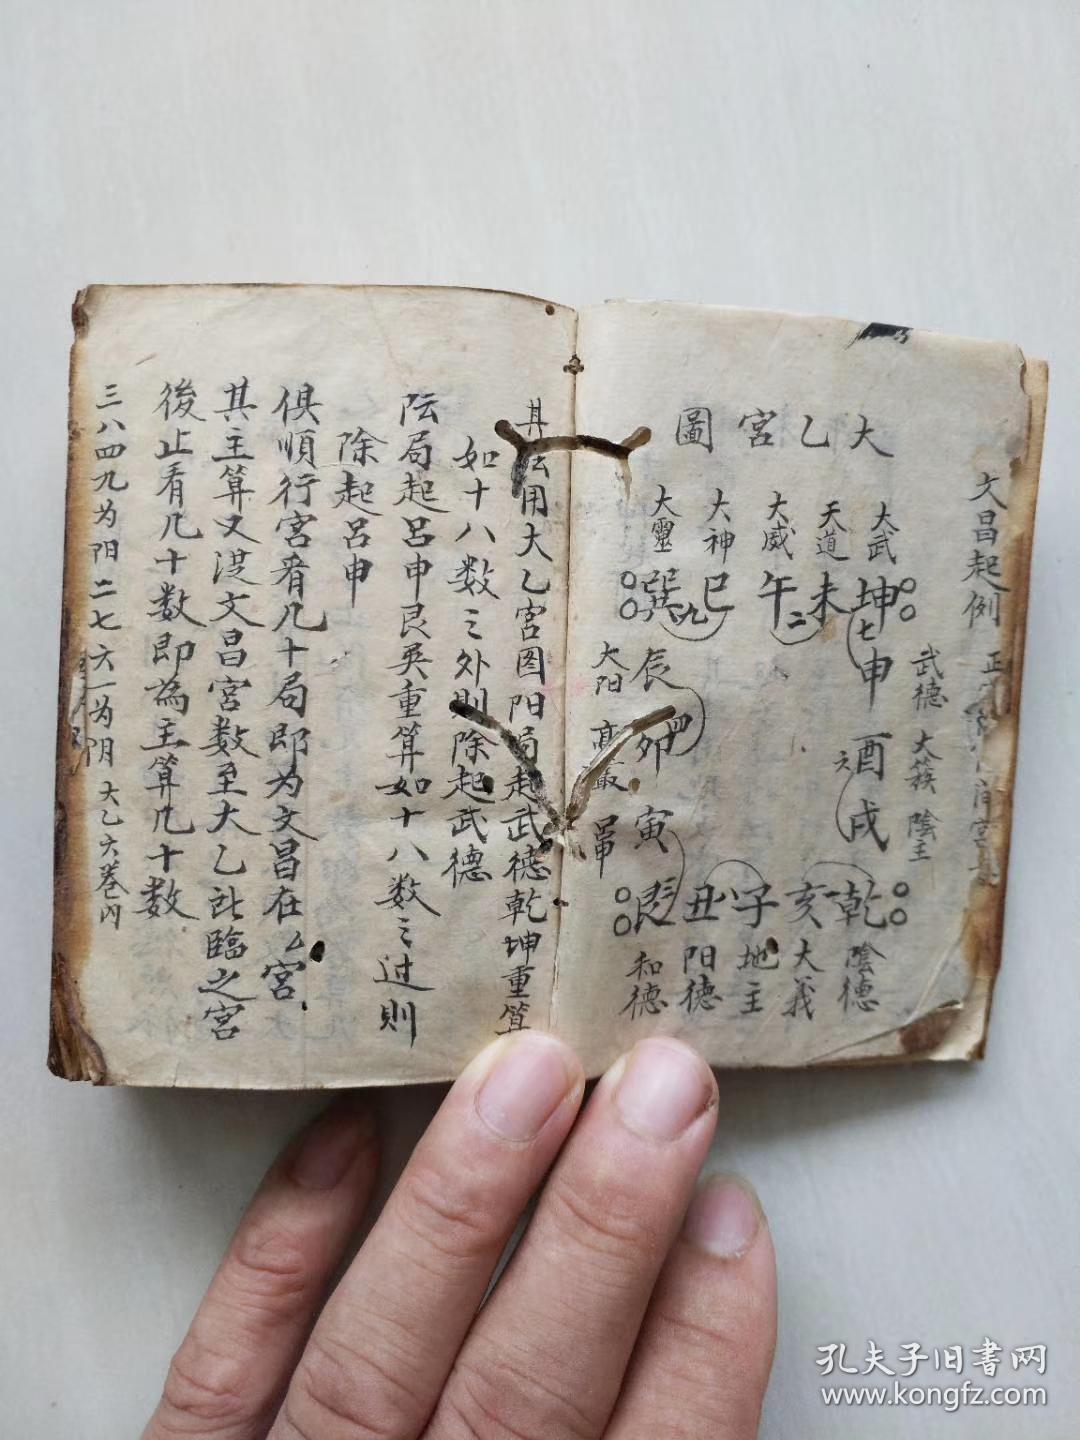 文昌起例
大乙宮圖
大武
天道
大威
大神
大靈
坤 未 午 巳 巽
七 二 九
辰
大阳
申
武德
卯
四
酉
大簇
寅
戌
陰主
乾 亥 子 丑 艮
一 八
陰德
大義
地主
阳德
和德
其法用大乙宮图阳局起武德乾坤重算
如十八数之外则除起武德
阴局起吕申艮巽重算如十八数之过則
除起吕申
俱順行宮看几十局即为文昌在么宮
其主算又従文昌宮数至大乙所臨之宮
後止看几十数即為主算几十数
三八四九为阳二七六一为阴 大乙六卷内
孔夫子旧書网
www.kongfz.com